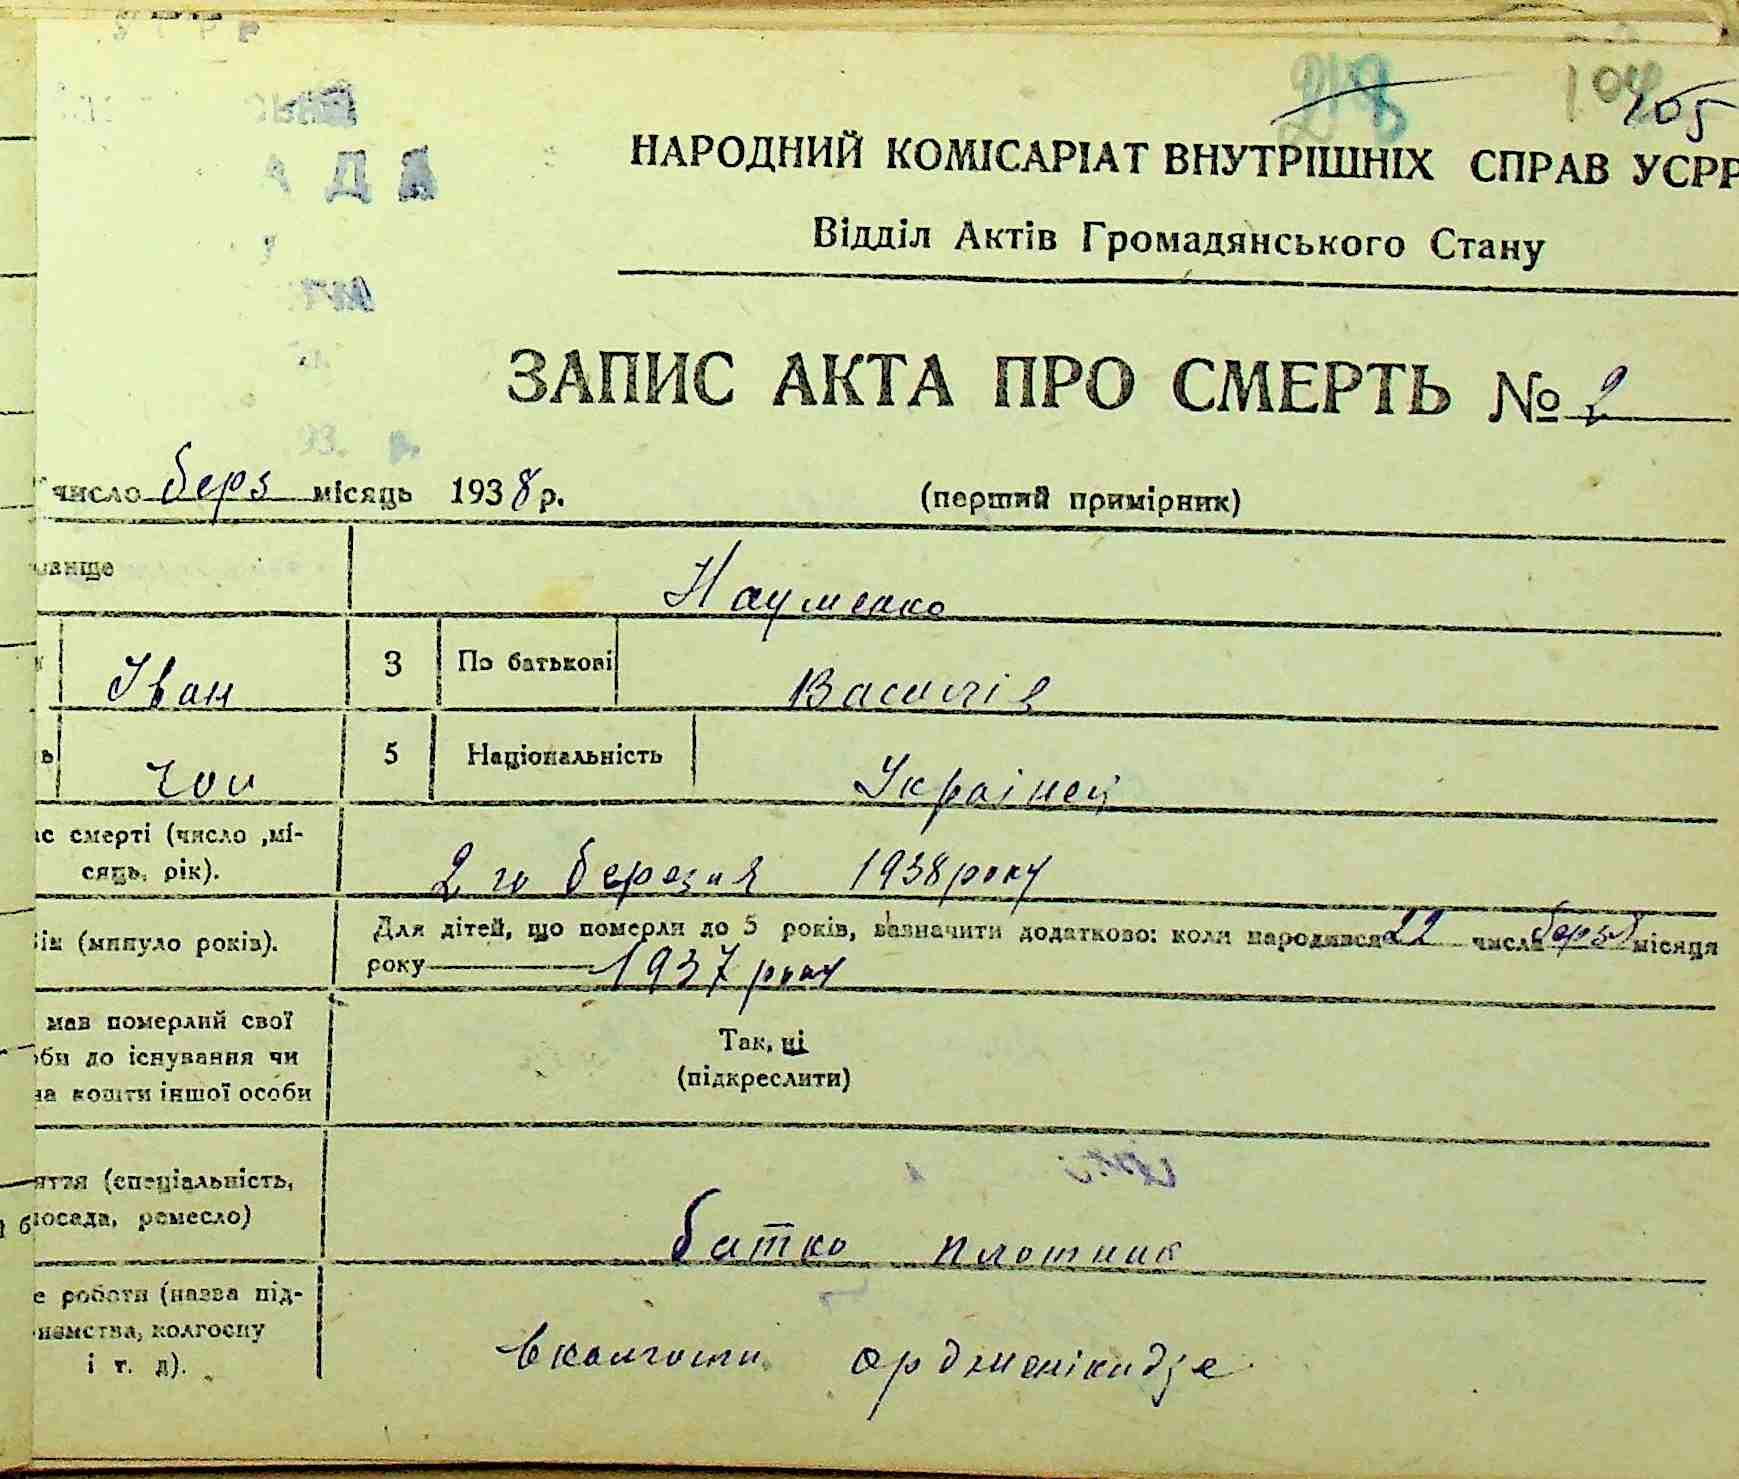 218 104 105
НАРОДНИЙ КОМІСАРІАТ ВНУТРІШНІХ СПРАВ УСРР
Відділ Актів Громадянського Стану
ЗАПИС АКТА ПРО СМЕРТЬ № 2
число берз місяць 1938 р. (перший примірник)
овище Науменко
Іван 3 По батькові Василів
ь чол 5 Національність Українец
ас смерті (число ,мі-
сяць, рік). 2 го березня 1938 року
Вік (минуло років). Для дітей, що померли до 5 років, зазначити додатково: коли народився 22 числа берзня місяця
року 1937 року
мав померлий свої
оби до існування чи Так, ні
на кошти іншої особи (підкреслити)
яття (спеціальність,
посада, ремесло) батко плотник
е роботи (назва під-
иємства, колгоспу
і т. д). вколгоспи ордженікидзе